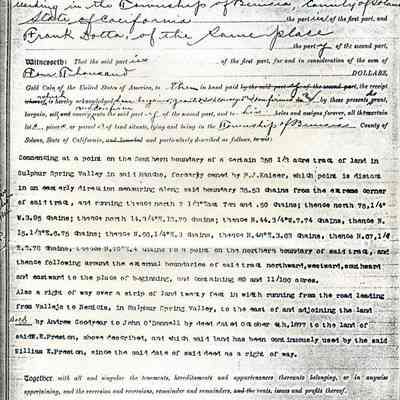 residing in the Township of Benicia, County of Solano
State of California the part ies of the first part, and
Frank Dotta, of the same place
the part y of the second part,
Witnesseth: That the said part ies of the first part, for and in consideration of the sum of
Ten Thousand DOLLARS,
Gold Coin of the United States of America, to them in hand paid by the said part y of the second part, the receipt
whereof is hereby acknowledged, have by these presents, grant,
bargain, sell and convey unto the said part y of the second part, and to his heirs and assigns forever, all th certain
lot , piece or parcel of land situate, lying and being in the Township of Benicia County of
Solano, State of California, and bounded and particularly described as follows, to-wit:
Commencing at a point on the Southern boundary of a certain 358 1/3 acre tract of land in
Sulphur Spring Valley in said Rancho, formerly owned by which point is distant
in an easterly direction measuring along said boundary 35.53 chains from the extreme corner
of said tract, and running thence north 2 1/2° East Ten and .50 chains; thence north 75,1/4°
W.3.95 chains; thence north 14,3/4°E.13.79 chains; thence N.44,3/4°E.7.74 chains, thence N.
15.1/3°E.6.75 chains; thence N.60,1/4°E.3 chains, thence N.48°E.3.63 chains, thence N.67,1/4
E.3.78 chains, thence N.70°E.4 chains to a point on the northern boundary of said tract, and
thence following around the external boundaries of said tract northward,westward,southward
and eastward to the place of beginning, and containing 80 and 11/100 acres.
Also a right of way over a strip of land twenty feet in width running from the road leading
from Vallejo to Benicia, in Sulphur Spring Valley, to the east of and adjoining the land
sold by Andrew Goodyear to John O'Donnell by deed dated October 4th,1877 to the land of
saidW.E.Preston, above described, and which said land has been continuously used by the said
William E.Preston, since the said date of said deed as a right of way.
Together with all and singular the tenements, hereditaments and appurtenances thereunto belonging, or in anywise
appertaining, and the reversion and reversions, remainder and remainders, and the rents, issues and profits thereof.